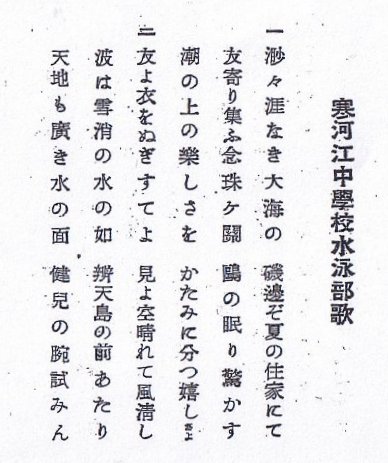 寒河江中學校水泳部歌
一 渺々涯なき大海の 磯邊ぞ夏の住家にて
友寄り集ふ念珠ケ關 鷗の眠り驚かす
潮の上の樂しさを かたみに分つ嬉しさよ
二 友よ衣をぬぎすてよ 見よ空晴れて風淸し
波は雪消の水の如 辨天島の前あたり
天地も廣き水の面 健兒の腕試みん